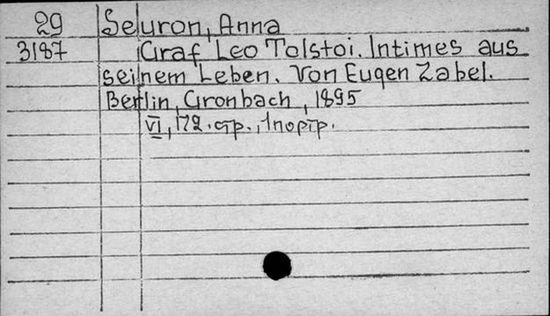 29 Seuron, Anna
3187 Graf Leo Tolstoi. Intimes aus
seinem Leben. Von Eugen Zabel.
Berlin, Cronbach, 1895
VI, 172 стр., 1 портр.